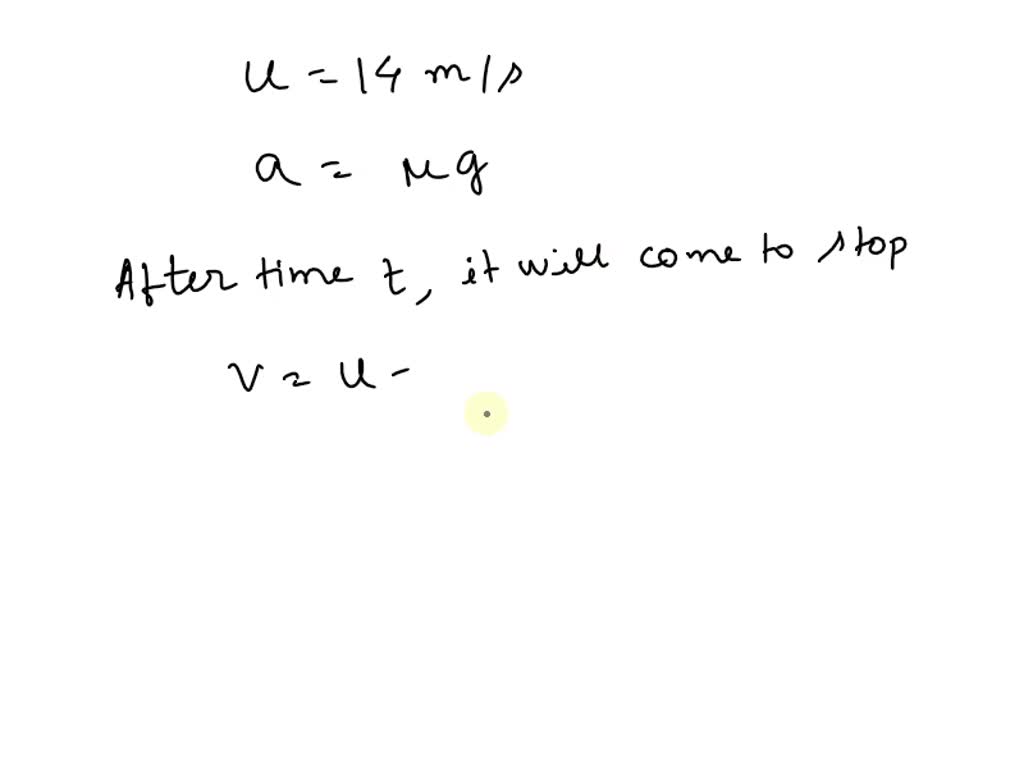 u = 14 m/s
a = μg
After time t, it will come to stop
v = u -